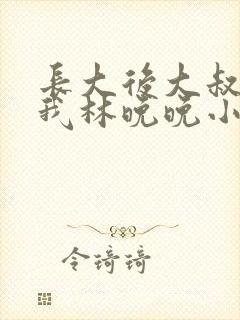 長大後大叔
我林晚晚小
令琦琦